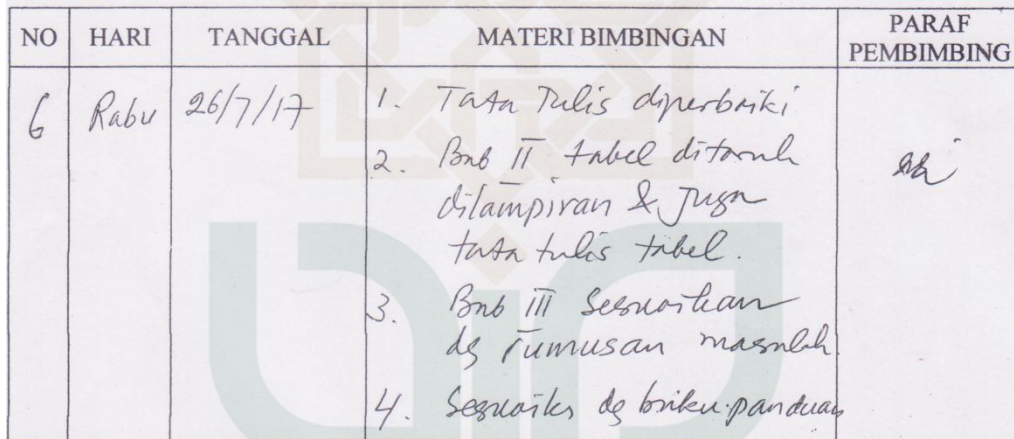 NO HARI TANGGAL MATERI BIMBINGAN PARAF PEMBIMBING
6 Rabu 26/7/17 1. Tata Tulis diperbaiki
2. Bab II tabel ditaruh
dilampiran & Juga
tata tulis tabel.
3. Bab III Sesuaikan
dg rumusan masalah.
4. Sesuaikn dg buku panduan